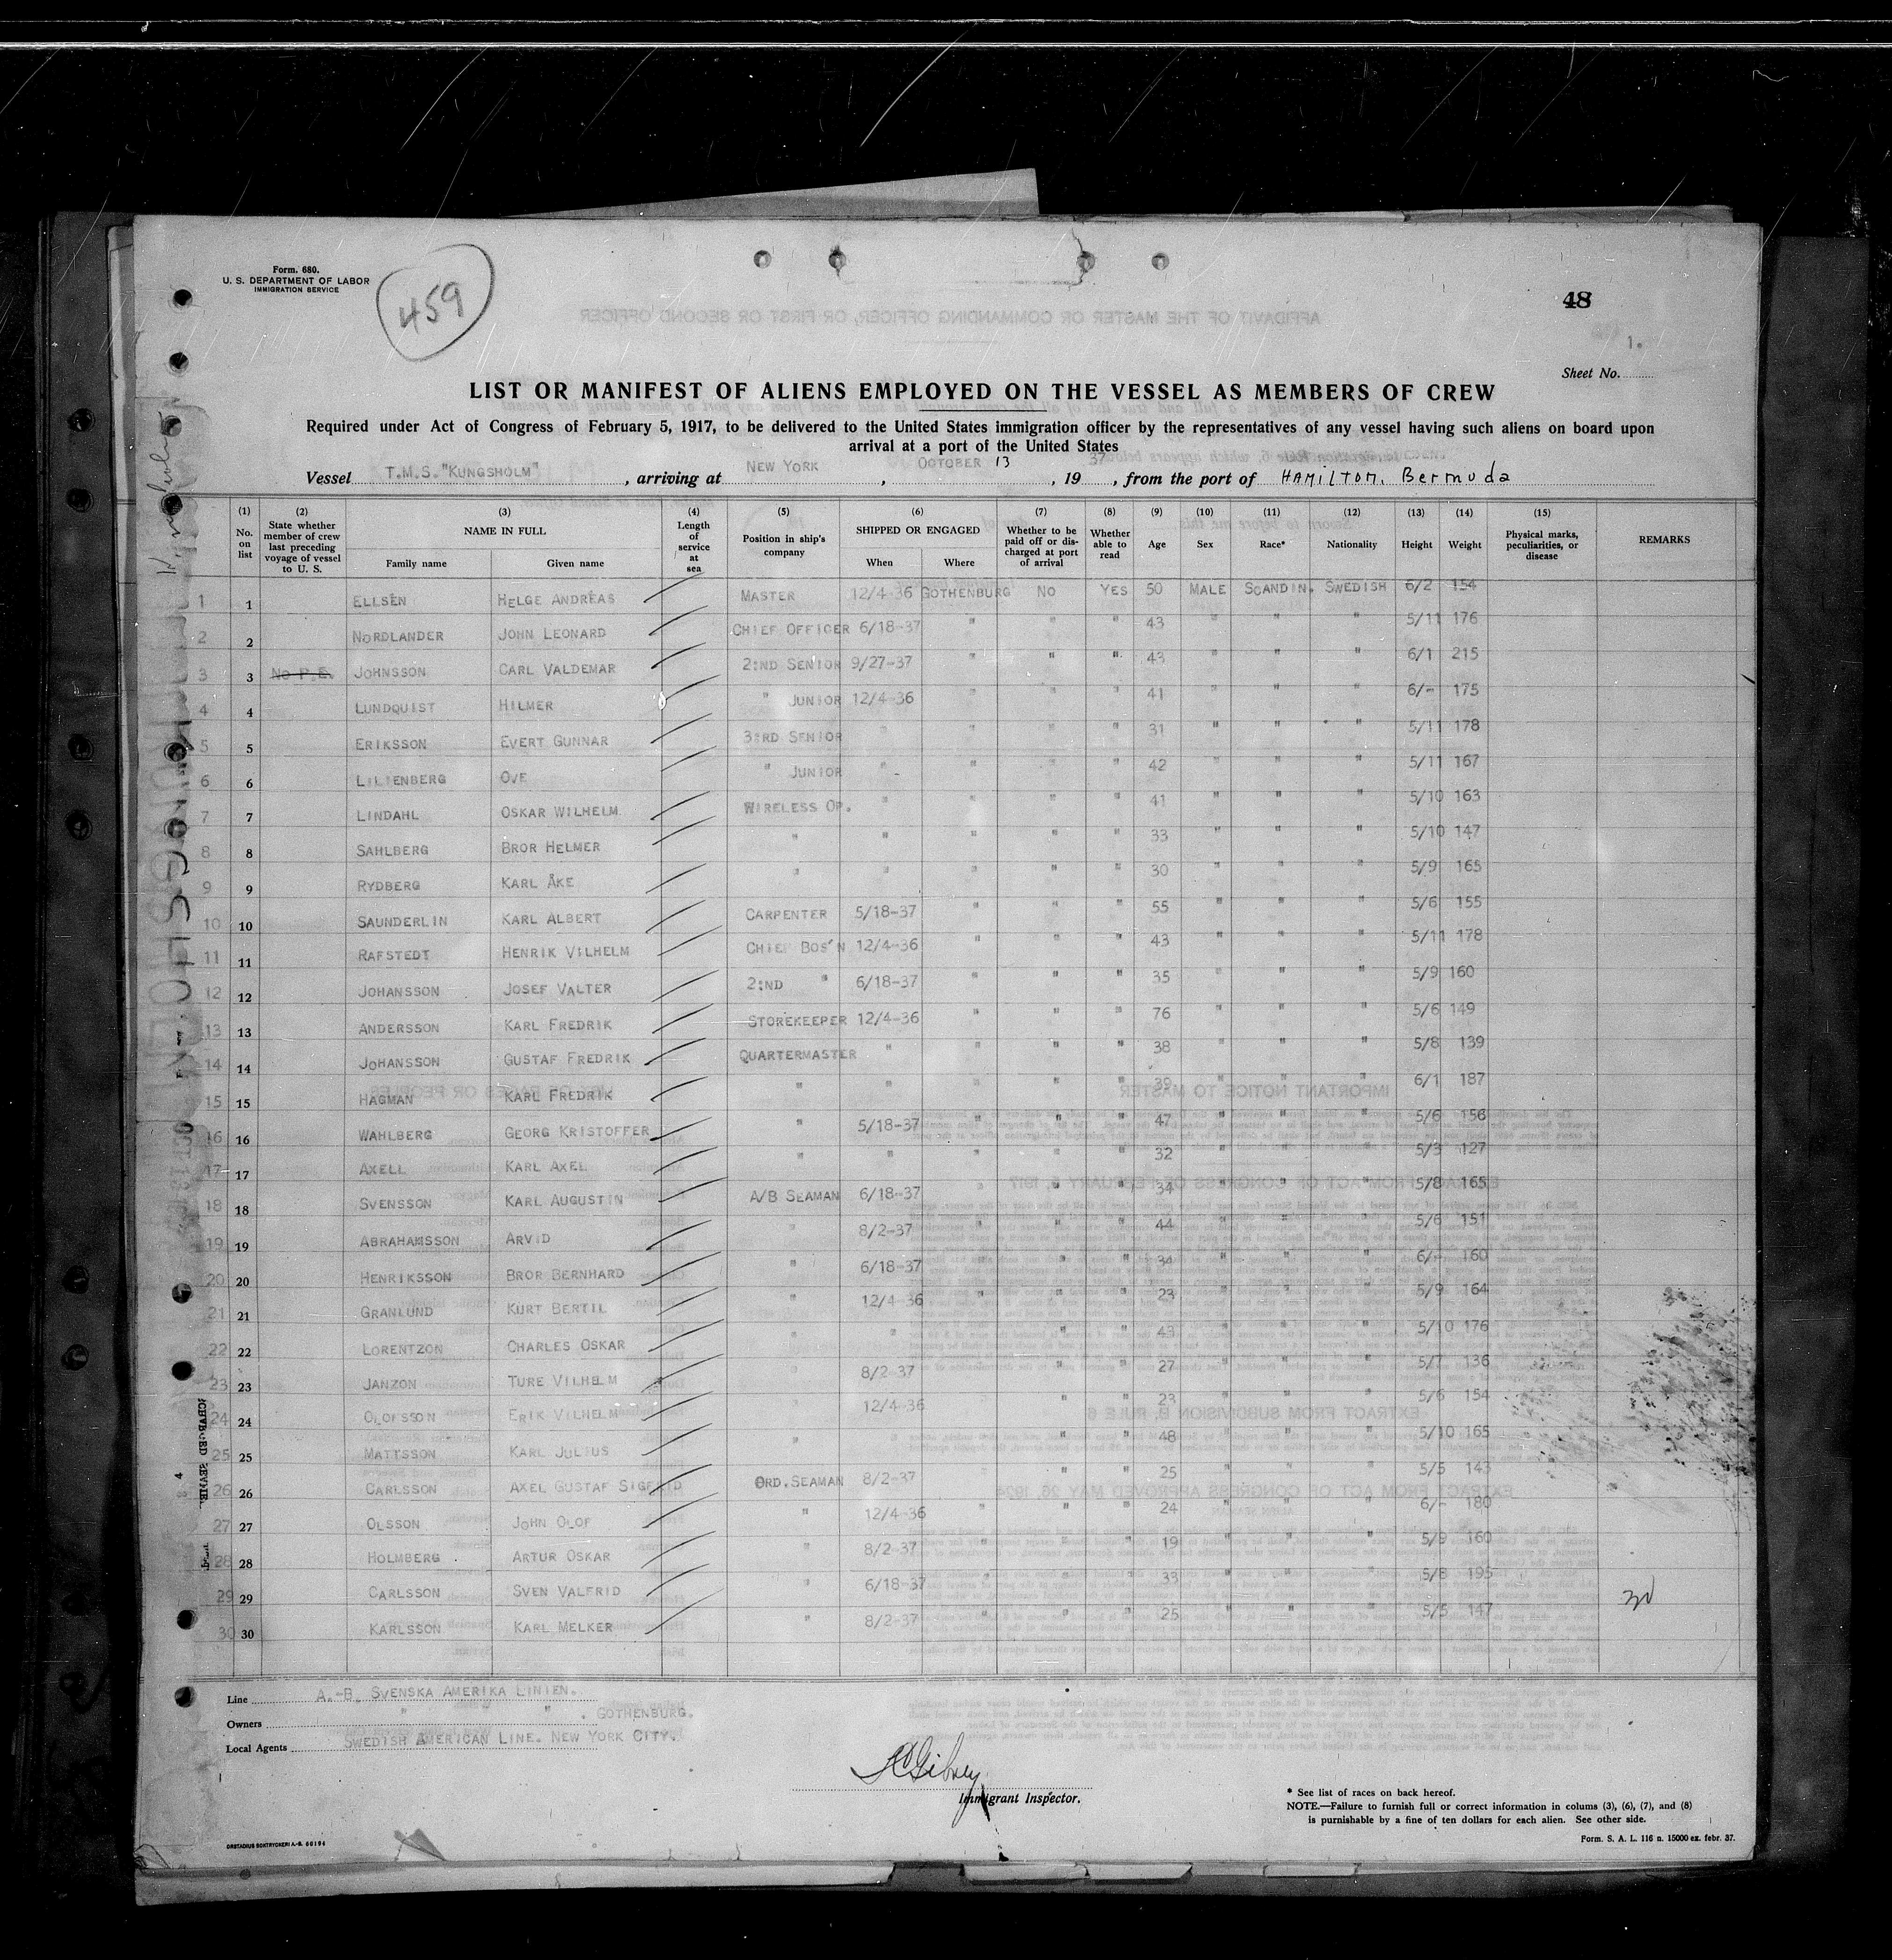 Form. 680.
U. S. DEPARTMENT OF LABOR
IMMIGRATION SERVICE
459
48
1.
Sheet No.
LIST OR MANIFEST OF ALIENS EMPLOYED ON THE VESSEL AS MEMBERS OF CREW
Required under Act of Congress of February 5, 1917, to be delivered to the United States immigration officer by the representatives of any vessel having such aliens on board upon
arrival at a port of the United States
Vessel T.M.S. "KUNGSHOLM", arriving at NEW YORK, OCTOBER 13, 1937, from the port of HAMILTON, Bermuda
(1) No. on list (2) State whether member of crew last preceding voyage of vessel to U. S. (3) NAME IN FULL Family name Given name (4) Length of service at sea (5) Position in ship's company (6) SHIPPED OR ENGAGED When Where (7) Whether to be paid off or discharged at port of arrival (8) Whether able to read (9) Age (10) Sex (11) Race* (12) Nationality (13) Height (14) Weight (15) Physical marks, peculiarities, or disease REMARKS
1 1 ELLSÉN HELGE ANDRÉAS MASTER 12/4-36 GOTHENBURG NO YES 50 MALE SCANDIN. SWEDISH 6/2 154
2 2 NORDLANDER JOHN LEONARD CHIEF OFFICER 6/18-37 " " " 43 " " " 5/11 176
3 3 No P.E. JOHNSSON CARL VALDEMAR 2:ND SENIOR 9/27-37 " " " 43 " " " 6/1 215
4 4 LUNDQUIST HILMER " JUNIOR 12/4-36 " " " 41 " " " 6/- 175
5 5 ERIKSSON EVERT GUNNAR 3:RD SENIOR " " " " 31 " " " 5/11 178
6 6 LILIENBERG OVE " JUNIOR " " " " 42 " " " 5/11 167
7 7 LINDAHL OSKAR WILHELM WIRELESS OP. " " " " 41 " " " 5/10 163
8 8 SAHLBERG BROR HELMER " " " " " 33 " " " 5/10 147
9 9 RYDBERG KARL ÅKE " " " " " 30 " " " 5/9 165
10 10 SAUNDERLIN KARL ALBERT CARPENTER 5/18-37 " " " 55 " " " 5/6 155
11 11 RAFSTEDT HENRIK VILHELM CHIEF BOS'N 12/4-36 " " " 43 " " " 5/11 178
12 12 JOHANSSON JOSEF VALTER 2:ND " 6/18-37 " " " 35 " " " 5/9 160
13 13 ANDERSSON KARL FREDRIK STOREKEEPER 12/4-36 " " " 76 " " " 5/6 149
14 14 JOHANSSON GUSTAF FREDRIK QUARTERMASTER " " " " 38 " " " 5/8 139
15 15 HAGMAN KARL FREDRIK " " " " " 39 " " " 6/1 187
16 16 WAHLBERG GEORG KRISTOFFER " 5/18-37 " " " 47 " " " 5/6 156
17 17 AXELL KARL AXEL " " " " " 32 " " " 5/3 127
18 18 SVENSSON KARL AUGUSTIN A/B SEAMAN 6/18-37 " " " 34 " " " 5/8 165
19 19 ABRAHAMSSON ARVID " 8/2-37 " " " 44 " " " 5/6 151
20 20 HENRIKSSON BROR BERNHARD " 6/18-37 " " " 34 " " " 6/- 160
21 21 GRANLUND KURT BERTIL " 12/4-36 " " " 23 " " " 5/9 164
22 22 LORENTZON CHARLES OSKAR " " " " " 43 " " " 5/10 176
23 23 JANZON TURE VILHELM " 8/2-37 " " " 27 " " " 5/7 136
24 24 OLOFSSON ERIK VILHELM " 12/4-36 " " " 23 " " " 5/6 154
25 25 MATTSSON KARL JULIUS " " " " " 48 " " " 5/10 165
26 26 CARLSSON AXEL GUSTAF SIGFRID ORD. SEAMAN 8/2-37 " " " 25 " " " 5/5 143
27 27 OLSSON JOHN OLOF " 12/4-36 " " " 24 " " " 6/- 180
28 28 HOLMBERG ARTUR OSKAR " 8/2-37 " " " 19 " " " 5/9 160
29 29 CARLSSON SVEN VALFRID " 6/18-37 " " " 33 " " " 5/8 195
30 30 KARLSSON KARL MELKER " 8/2-37 " " " 25 " " " 5/5 147
Line A.-B. SVENSKA AMERIKA LINIEN.
Owners " " " . GOTHENBURG.
Local Agents SWEDISH AMERICAN LINE. NEW YORK CITY.
Immigrant Inspector.
* See list of races on back hereof.
NOTE.—Failure to furnish full or correct information in colums (3), (6), (7), and (8)
is purnishable by a fine of ten dollars for each alien. See other side.
ORSTADIUS BOKTRYCKERI A.-B. 66194
Form. S. A. L. 116 n. 15000 ex. febr. 37.